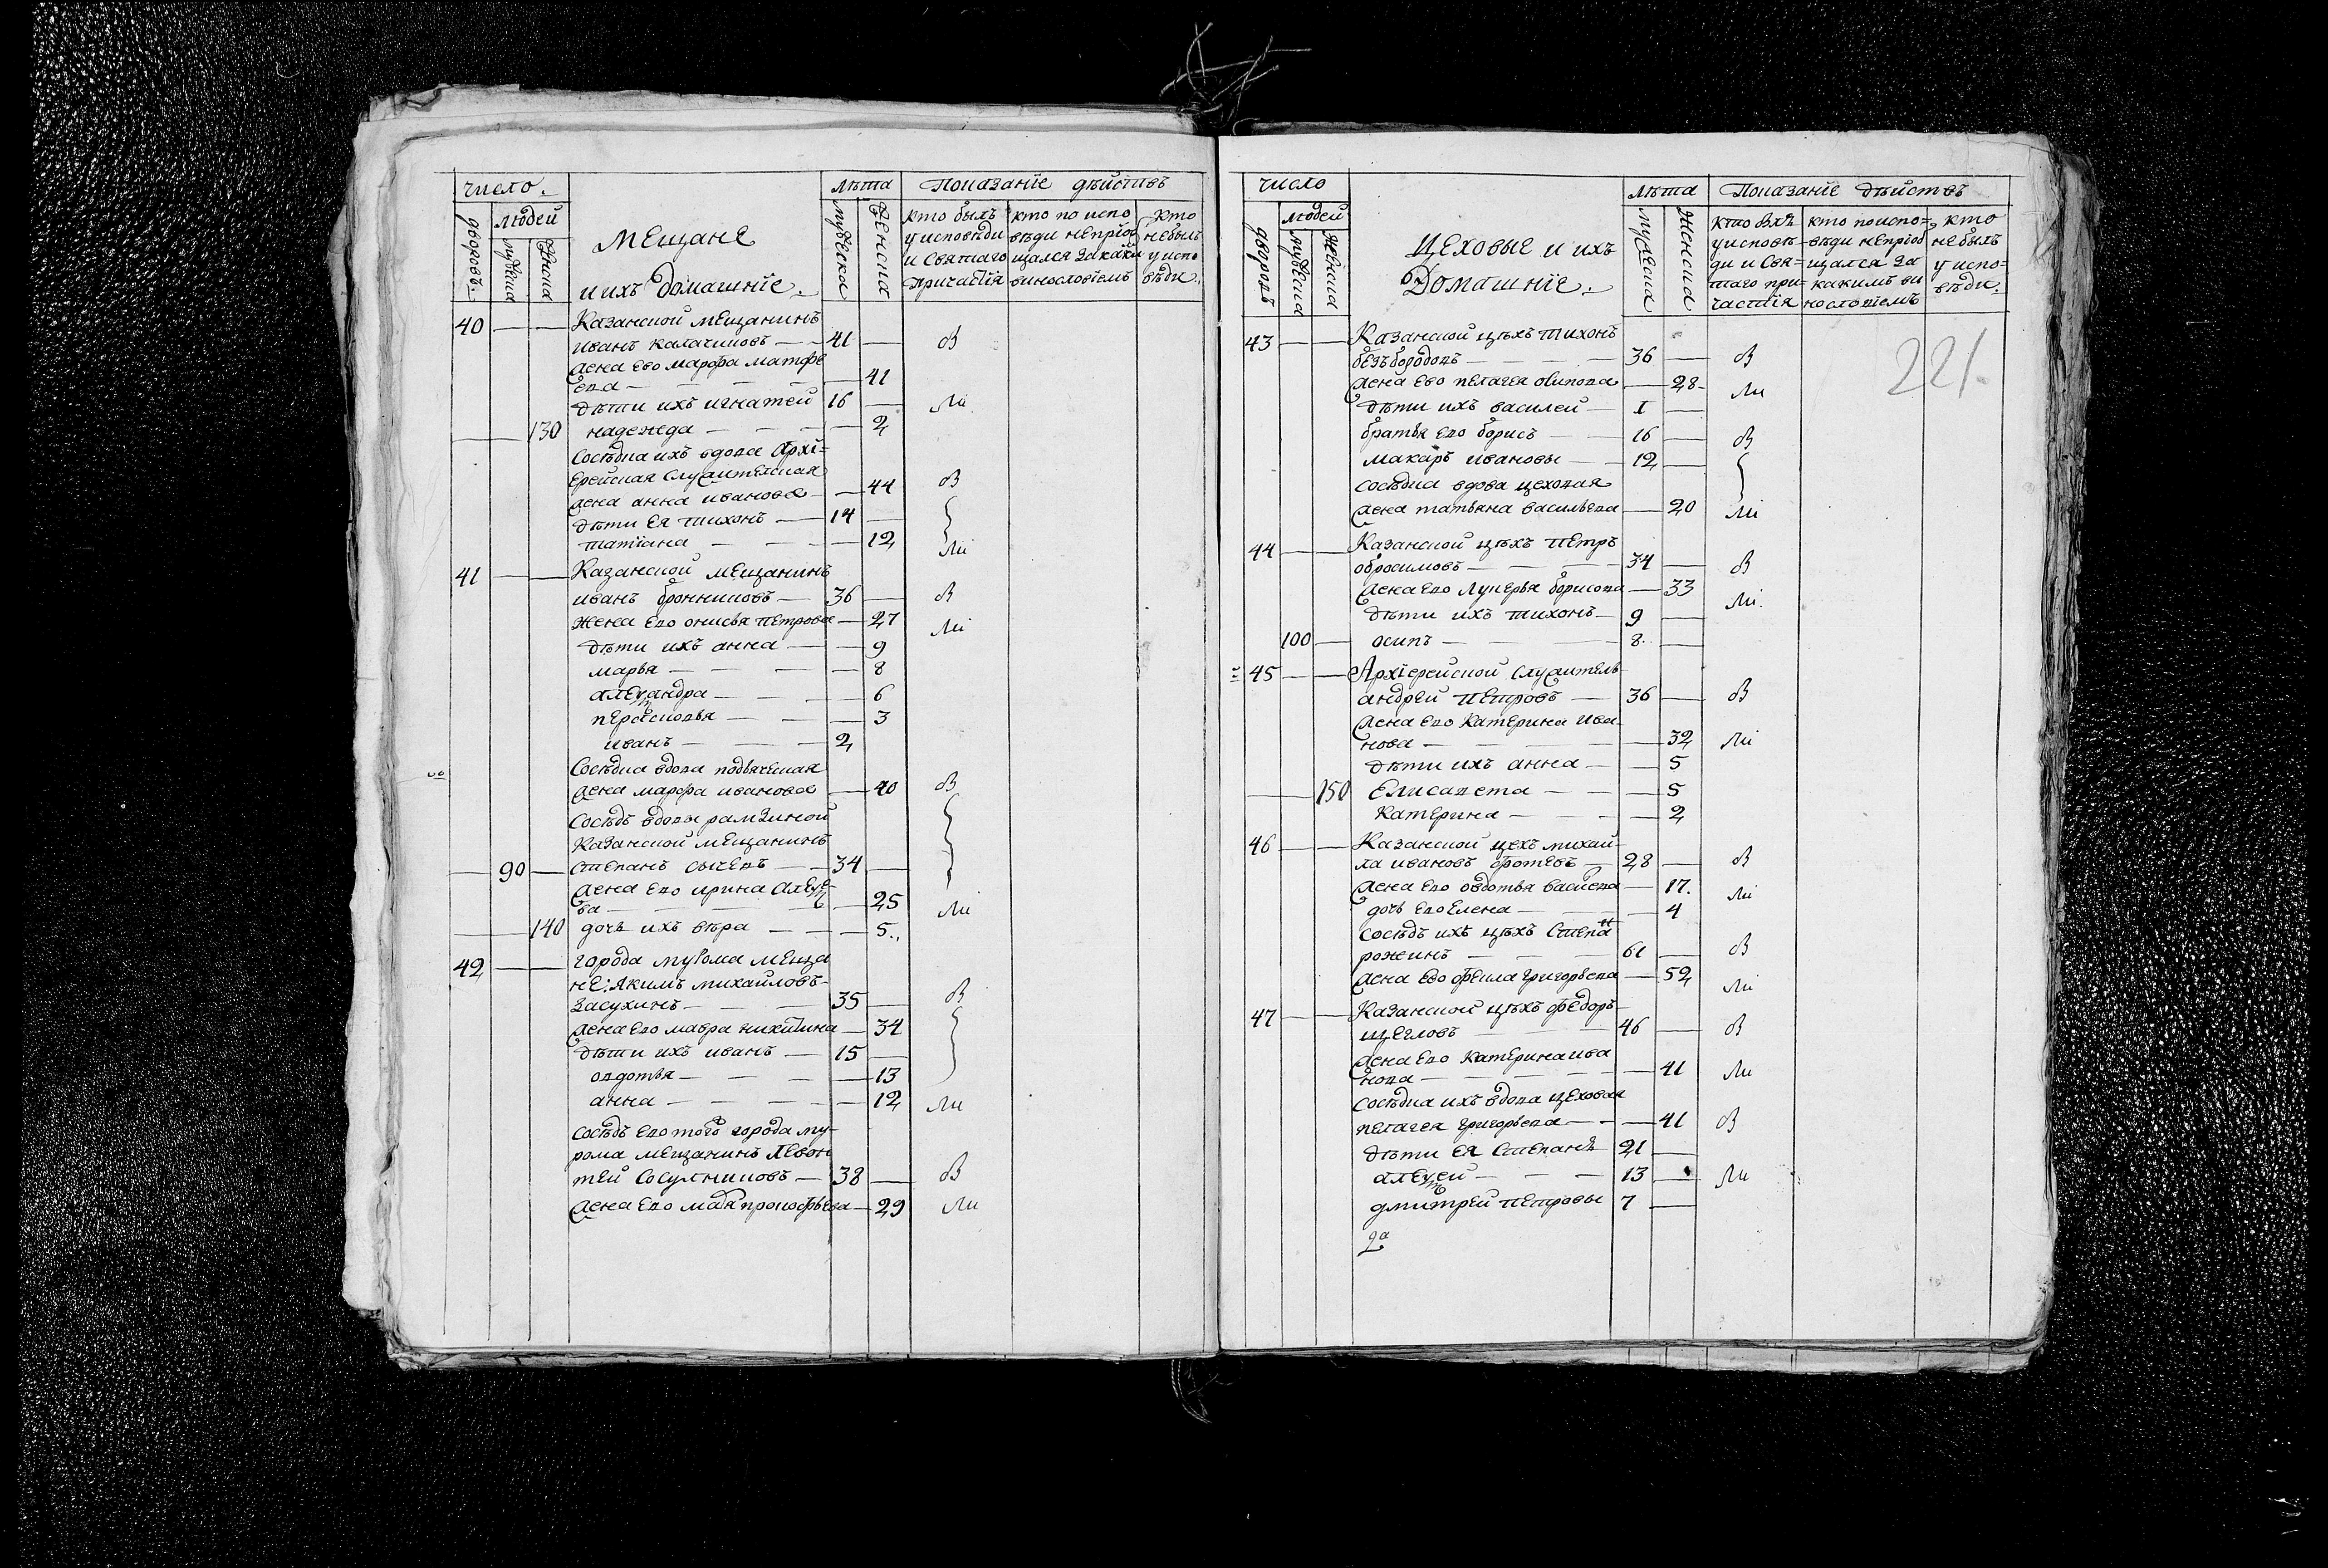 число.
лѣта
Показанїе дѣйствъ
дворовъ.
людей
мужеска
женска
Мещане
и ихъ домашнїе.
мужеска
женска
кто былъ
у исповѣди
и святаго
причастїя
кто по испо
вѣди непрїоб
щался за каки
винословїемъ
кто
небылъ
у испо
вѣди.
40 — — Казанской мещанинъ
иванъ калачниковъ — — 41 — В
жена ево марфа матфѣ
ева — — — — 41
дѣти ихъ игнатей 16 — Ли
130 надежда — — — 2
сосѣдка ихъ вдова Архї=
ерейская служительская
жена анна иванова — — 44 В
дѣти ея тихонъ — 14 —
татїана — — — 12 Ли
41 — — Казанской мещанинъ
иванъ бронниковъ — 36 — В
жена ево онисья петрова — 27 Ли
дѣти ихъ анна — — 9
марья — — — 8
александра — — — 6
перасковья — — — 3
иванъ — — — 2
Сосѣдка вдова подьяческая
жена марфа иванова — 40 В
Сосѣдъ вдовы рамзиной
Казанской мещанинъ
90 — степанъ сычевъ — — 34 —
жена ево ирина алексѣ-
ва — — — — 25 Ли
140 дочь ихъ вѣра — — — 5.
42 — — города мурома меща
не: якимъ михайловъ
засухинъ — — — 35 — В
жена ево мавра никитина — 34
дѣти ихъ иванъ — 15 —
овдотья — — — 13
анна — — — — 12 Ли
сосѣдъ ево того города му-
рома мещанинъ левон
тей Сосулниковъ — 38 — В
жена ево мавра прокофьева — 29 Ли
число
лѣта
Показанїе дѣйствъ
дворовъ
людей
мужеска
женска
Цеховые и ихъ
Домашнїе.
мужеска
женска
кто былъ
у исповѣ-
ди и Свя=
таго при-
частїя
кто по испо=
вѣди непрїоб
щался за
какимъ ви
нословїемъ
кто
небылъ
у испо=
вѣди.
221.
43 — — Казанской цѣхъ тихонъ
безъбородовъ — — — 36 — В
жена ево пелагея осипова — 28 — Ли
дѣти ихъ василей — 1 —
братья ево борисъ — — 16 — В
макаръ ивановы — — 12 —
сосѣдка вдова цеховая
жена татьяна васильева — 20 Ли
44 — — Казанской цѣхъ петръ
обросимовъ — — — 34 — В
жена ево лукерья борисова — 33 Ли.
дѣти ихъ тихонъ — 9 —
100 — осипъ — — — 8. —
45 — — Архїерейской служитель
андрей петровъ — 36 — В
жена ево катерина ива
нова — — — — 32 Ли
дѣти ихъ анна — — 5
150 Елисавета — — — 5
катерина — — — 2
46 — — Казанской цехъ михай-
ла ивановъ фотевъ — 28 — В
жена ево овдотья василева — 17. Ли
дочь ево Елена — — — 4
сосѣдъ ихъ цѣхъ степанъ
рожинъ — — — 61 — В
жена ево фекла григорьева — 52 Ли
47 — — Казанской цѣхъ федоръ
щегловъ — — — 46 — В
жена ево катерина ива
нова — — — — 41 Ли
сосѣдка ихъ вдова цеховая
пелагея григорьева — — — 41 В
дѣти ея степанъ 21 —
алексей — — — 13 — Ли
дмитрей петровы 7 —